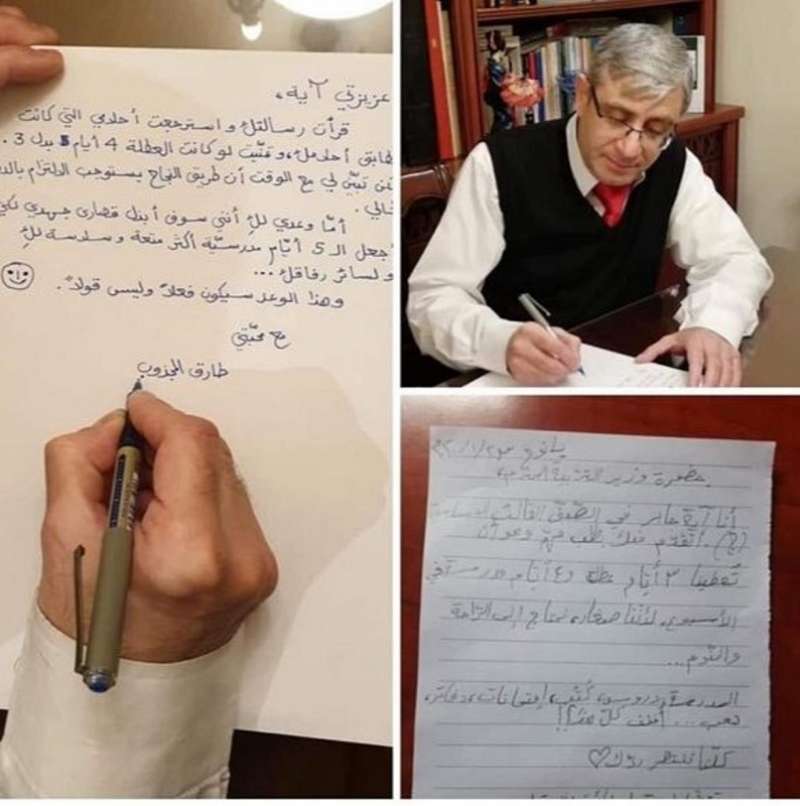 عزيزتي آية،
قرأت رسالتك واسترجعت أحلامي التي كانت
تطابق أحلامك، وتمنّيت لو كانت العطلة 4 أيام بدل 3.
تبيّن لي مع الوقت أن طريق النجاح يستوجب الالتزام
أمّا وعدي لكِ أنني سوف أبذل قصارى جهدي لكي
أجعل الـ 5 أيّام مدرسيّة أكثر متعة وسلاسة لكِ
ولسائر رفاقك ...
وهذا الوعد سيكون فعلاً وليس قولاً.
مع محبّتي
طارق المجذوب
حضرة وزير التربية المحترم،
أنا آية جابر في الصّفّ الثالث
أتقدّم منك بطلب مهم وهو أن
تُعطينا ٣ أيّام عطلة و٤ أيام مدرسة في
الأسبوع، لأننا صغار، نحتاج إلى الرّاحة
والنّوم...
المدرسة، دروس، كُتُب، إمتحانات، دفاتر،
تعب...
كلّنا ننتظر ردّك♡